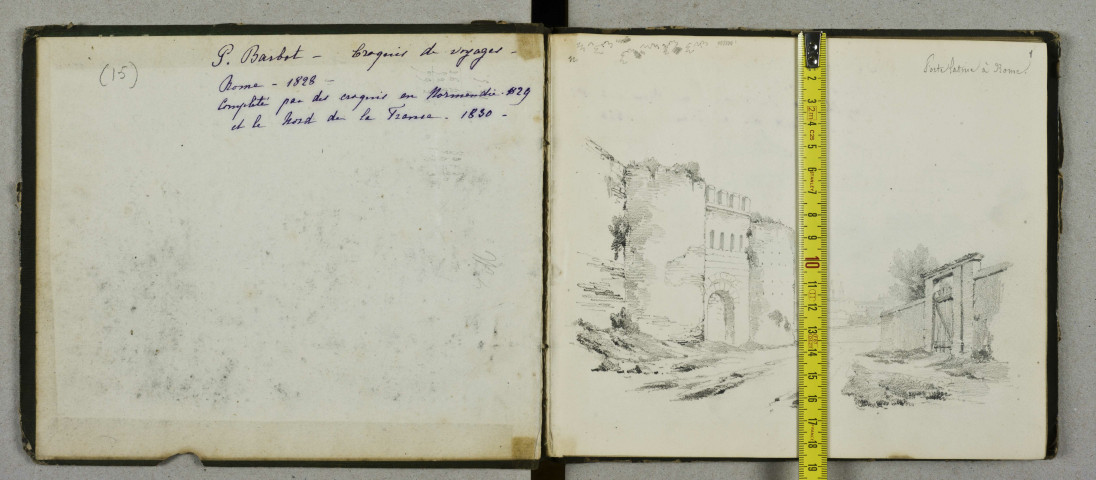 (15)
P. Barbot - Croquis de voyages -
Rome - 1828 -
Complété par des croquis en Normandie - 1829
et le Nord de la France - 1830 -
1
Porte latine à Rome
2
3
4
5
6
7
8
9
10
11
12
13
14
15
16
17
18
19